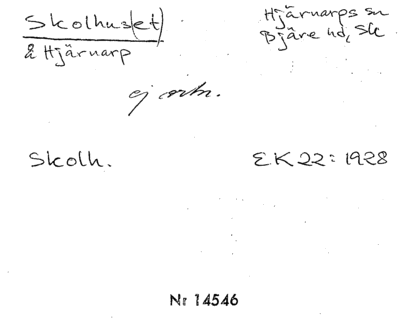 Skolhus(et)
å Hjärnarp
Hjärnarps sn
Bjäre hd, Sk
ej ortn.
Skolh.
EK 22: 1928
Nr 14546